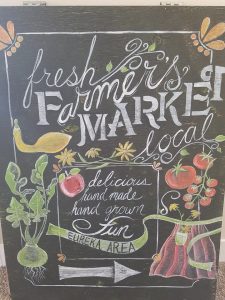 fresh
Farmer's
MARKET
local
delicious
hand made
hand grown
fun
EUREKA AREA